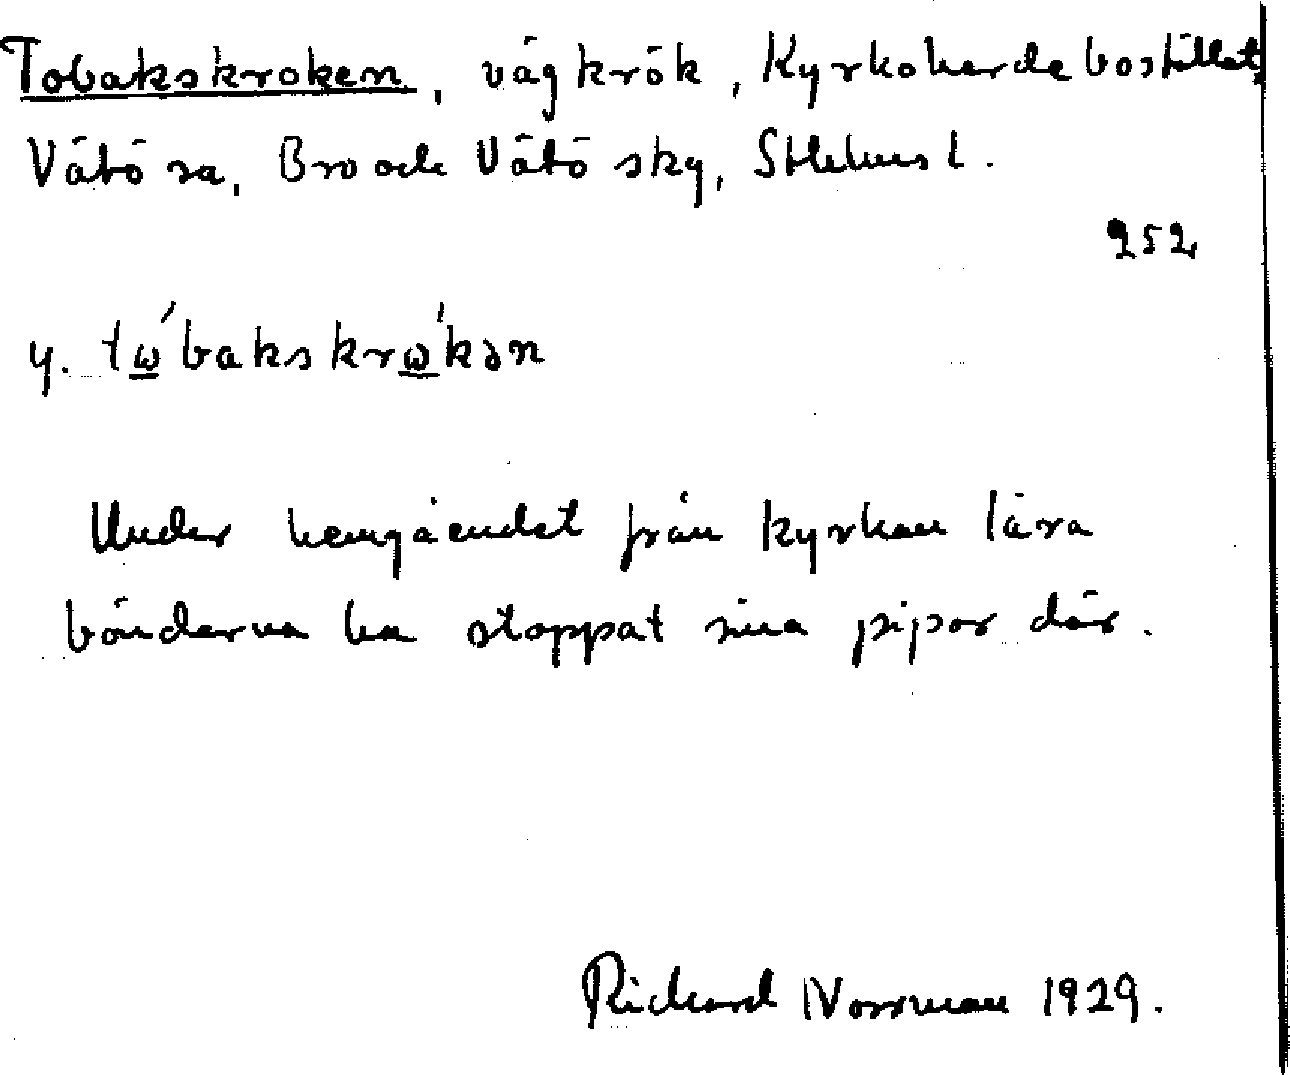 Tobakskroken, vägkrök, Kyrkoherdebostället,
Vätö sn, Bro och Vätö sky, Sthlms l.
252
y. tώbakskrὼkən
Under hemgåendet från kyrkan lära
bönderna ha stoppat sina pipor där.
Rickard Norrman 1929.